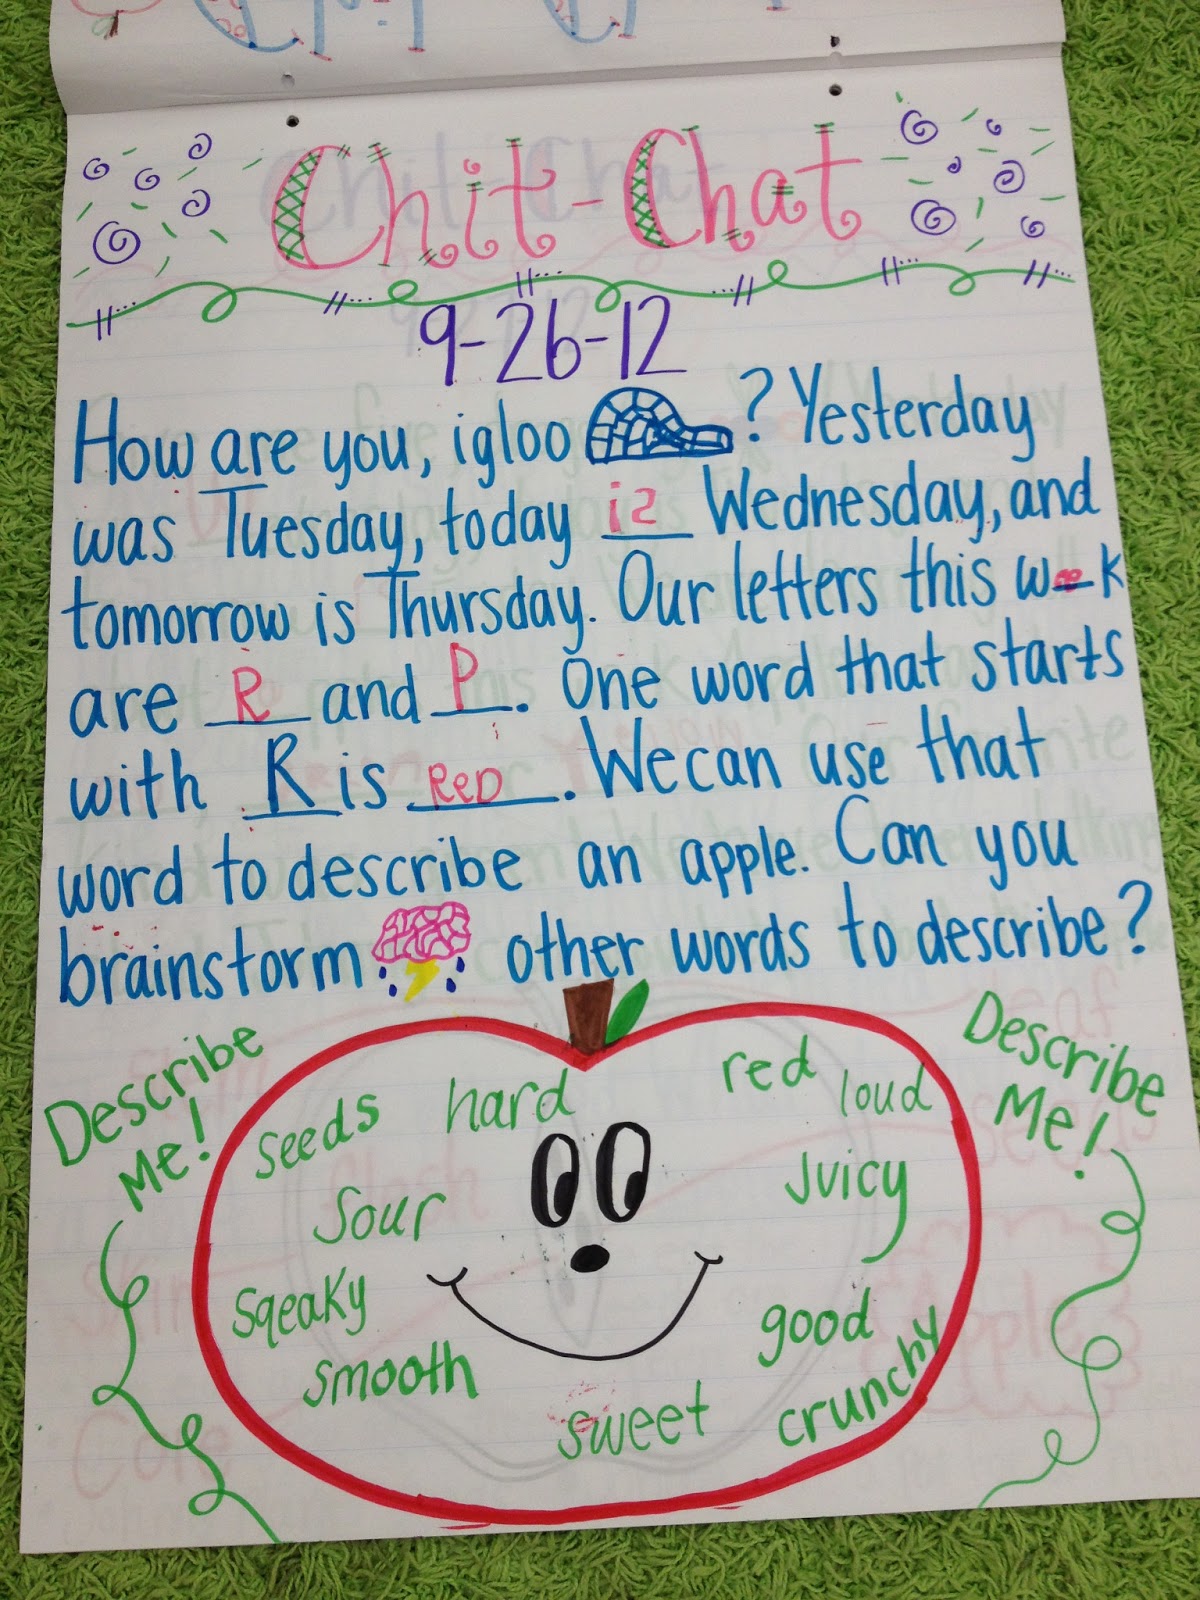 Chit-Chat
9-26-12
How are you, igloo ? Yesterday
was Tuesday, today is Wednesday, and
tomorrow is Thursday. Our letters this week
are R and P. One word that starts
with R is RED. We can use that
word to describe an apple. Can you
brainstorm other words to describe?
Describe
Me!
Describe
Me!
seeds
hard
red
loud
sour
juicy
sqeaky
good
smooth
sweet
crunchy